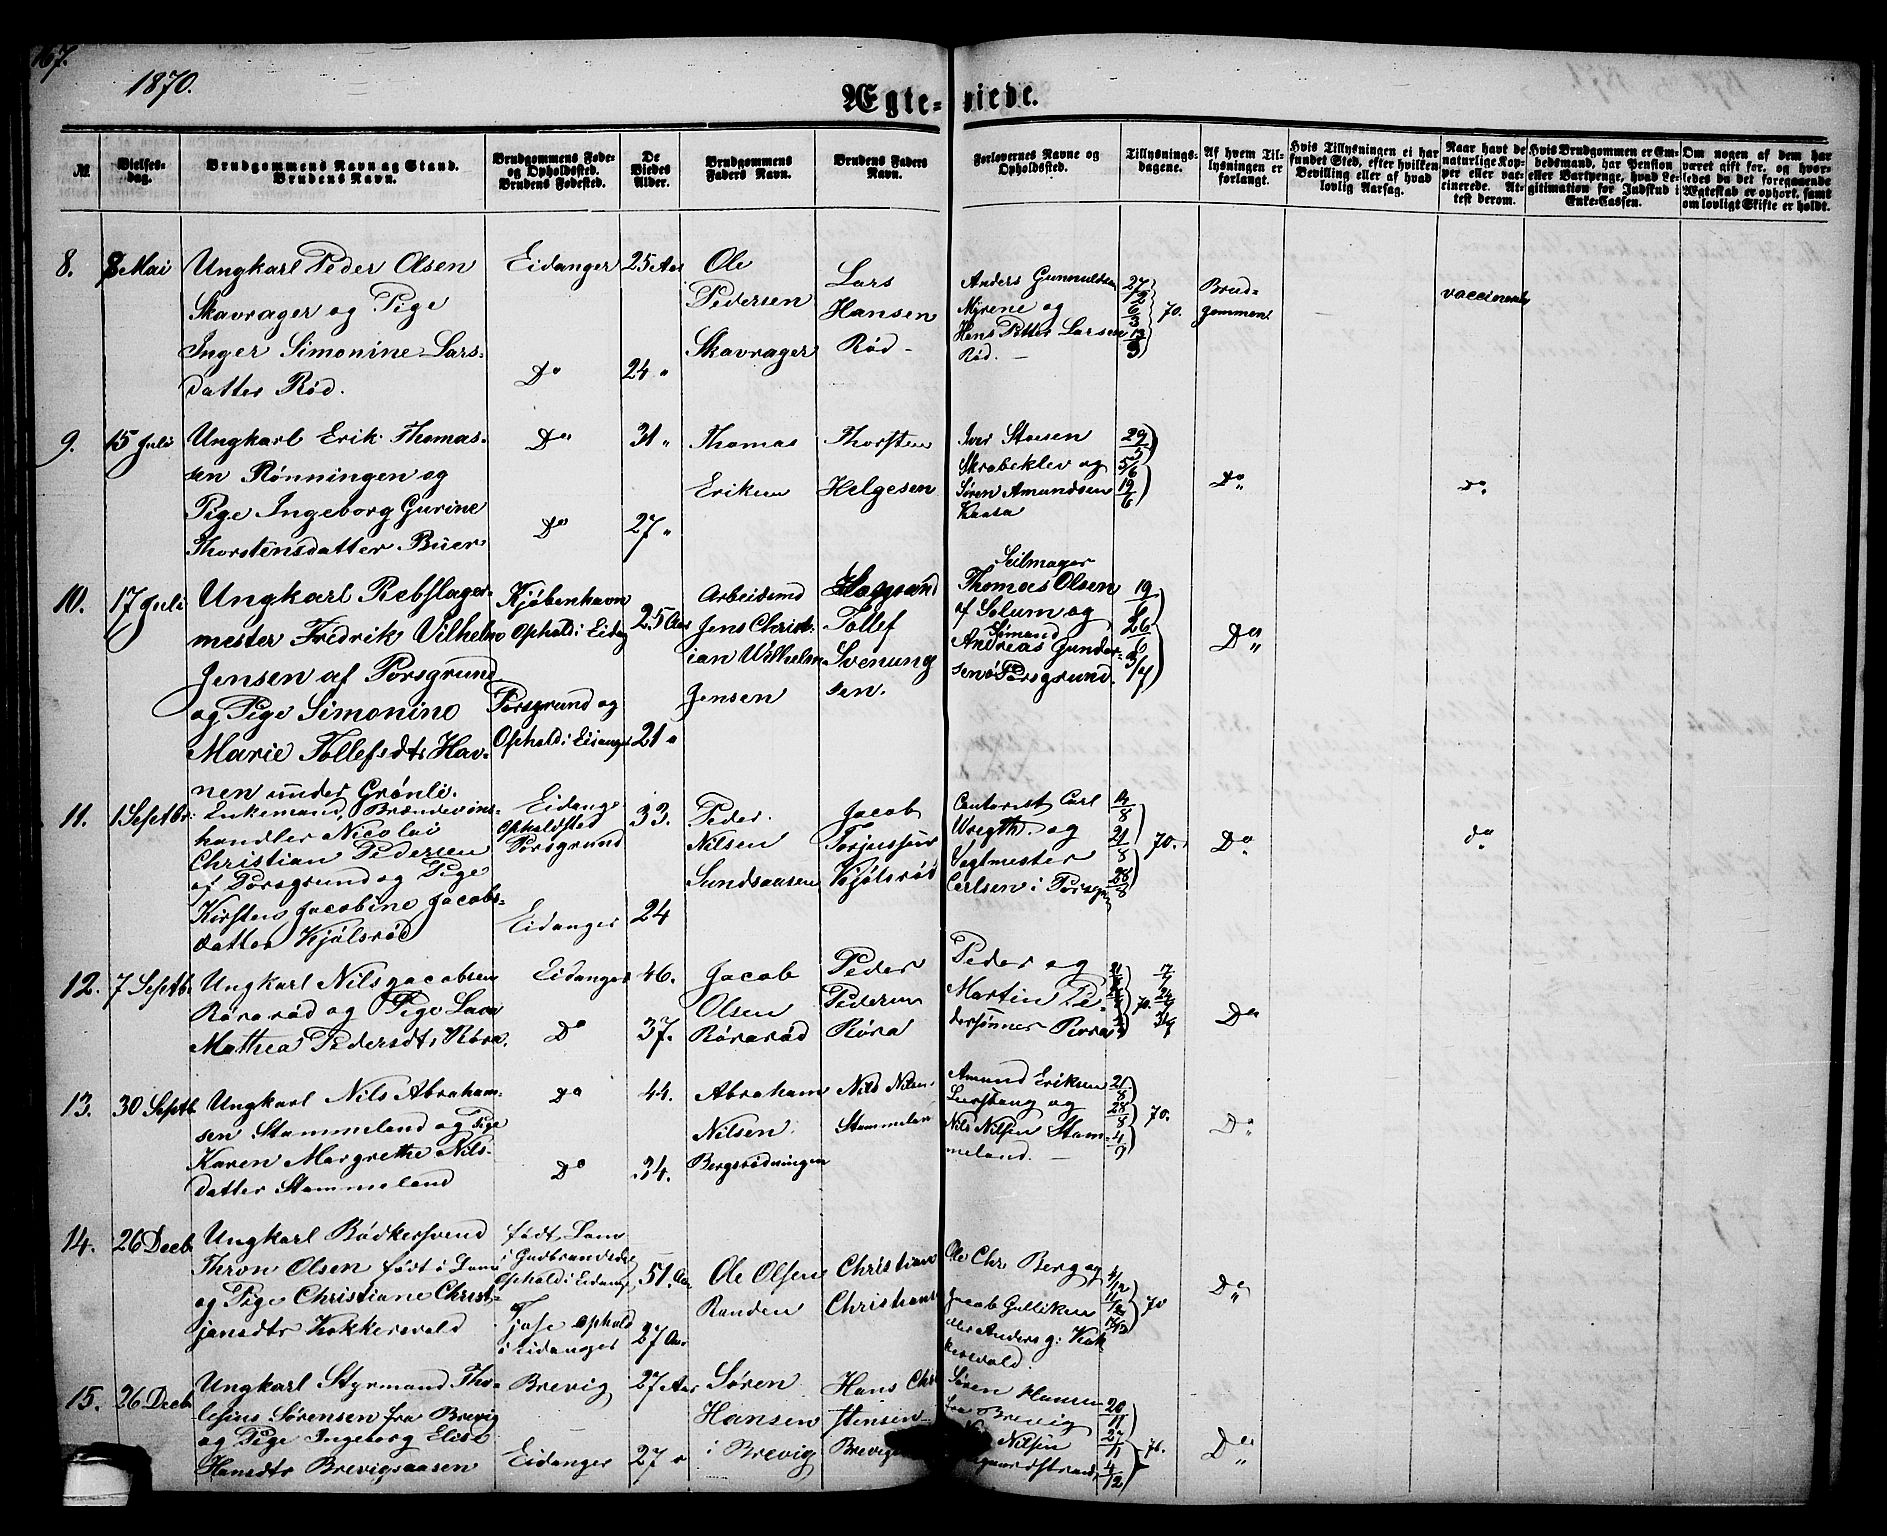 167.
1870.
Ægte-viede.
№
Vielses-
dag.
Brudgommens Navn og Stand.
Brudens Navn.
Brudgommens Føde-
og Opholdssted.
Brudens Fødested.
De
Viedes
Alder.
Brudgommens
Faders Navn.
Brudens Faders
Navn.
Forlovernes Navne og
Opholdssted.
Tillysnings-
dagene.
Af hvem Til-
lysningen er
forlangt.
Hvis Tillysningen ei har
fundet Sted, efter hvilken
Bevilling eller af hvad
lovlig Aarsag.
Naar havt de
naturlige Kop-
per eller vac-
cinerede. At-
test derom.
Hvis Brudgommen er Em-
bedsmand, har Pension
eller Vartpenge, hvad Le-
gitimation for Indskud i
Enke-Cassen.
Om nogen af dem har
været gift før, og hvor-
ledes da det foregaaende
Ægteskab er ophørt, samt
om lovligt Skifte er holdt.
8.
8 Mai
Ungkarl Peder Olsen
Skavrager og Pige
Inger Simonine Lars-
datter Rød.
Eidanger
Do
25 Aar
24 "
Ole
Pedersen
Skavrager
Lars
Hansen
Rød -
Anders Gunnuldsen
Myrene og
Hans Petter Larsen
Rød. -
27/2
6/3
13/3
70.
Brud-
gommen
vaccinerede
9.
15 Juli
Ungkarl Erik Thomas-
sen Rønningen og
Pige Ingeborg Gurine
Thorstensdatter Buer
Do
Do
31 "
27 "
Thomas
Eriksen
Thorsten
Helgesen
Iver Stoesen
Skrabeklev og
Søren Amundsen
Kaasa
29/5
5/6
19/6
Do
do
10.
17 Juli
Ungkarl Rebslager-
mester Fredrik Vilhelm
Jensen af Porsgrund
og Pige Simonine
Marie Tollefsdtr Hav-
nen under Grønli.
Kjøbenhavn
Ophold i Eidag
Porsgrund og
Ophold i Eidanger
25 Aar
21 "
Arbeidsmd
Jens Christ-
ian Wilhelm
Jensen
Tollef
Svenung
sen.
Seilmager
Thomas Olsen
af Solum og
Sømand
Andreas Gunder-
sen Porsgrund.
19/6
26/6
3/7
Do
11.
1 Septbr
Enkemand, Brændevins-
handler Nicolai
Christian Pedersen
af Porsgrund og Pige
Kirsten Jacobine Jacobs-
datter Kjølsrød
Eidange
Opholdsted
Porsgrund
Eidanger
33.
24
Peder
Nilsen
Sundsaasen
Jacob
Torjussen
Kjølsrød
Contorist Carl
Wregth. og
Vagtmester
Carlsen i Porsgr
14/8
21/8
28/8
70.
Do
do
12.
7 Septb.
Ungkarl Nils Jacobsen
Rørarød og Pige Lava
Mathea Pedersdtr Røra.
Eidanger
Do
46.
37.
Jacob
Olsen
Rørarød
Peder
Pedersen
Røra
Peder og
Martin Pe-
dersønner Røra
70.
Do
13.
30 Septb
Ungkarl Nils Abraham-
sen Stammeland og Pige
Karen Margrethe Nils-
datter Stammeland
Do
Do
44.
34.
Abraham
Nilsen
Bergsrødningen
Nils Nilsen
Stammelan
Amund Eriksen
Lerstang og
Nils Nilsen Stam-
meland. -
21/8
28/8
4/9
70.
Do
14.
26 Decb
Ungkarl Bødkersvend
Thron Olsen født i Lom
og Pige Christiane Christ-
jansdtr Kokkersvold
født, Lom
i Gudbrandsdal
Ophold i Eidang
Tjøse ophold
i Eidanger
51. Aar
27 Aar
Ole Olsen
Randen
Christian
Christians
Ole Chr Berg og
Jacob Gulliksen
eller Anders g: Kok
kersvold.
4/12
11/12
18/12
70
Do
15.
26 Decb
Ungkarl Styrmand Tho-
lesius Sørensen fra Brevig
og Pige Ingeborg Elise
Hansdtr Brevigsaasen
Brevig
Eidanger
27 Aar
27 "
Søren
Hansen
i Brevig
Hans Chr
stensen
Brevigs
Søren Hansen
fra Brevig
Nilsen
20/11
27/11
4/12
70.
Do